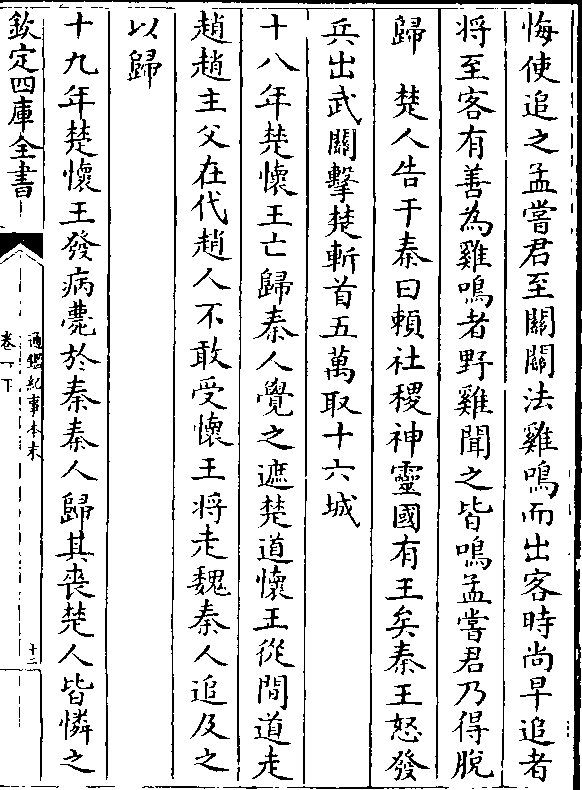 悔使追之孟嘗君至關關法雞鳴而出客時尚早追者
将至客有善為雞鳴者野雞聞之皆鳴孟嘗君乃得脫
歸　楚人告于秦曰賴社稷神靈國有王矣秦王怒發
兵出武關擊楚斬首五萬取十六城
十八年楚懷王亡歸秦人覺之遮楚道懷王從間道走
趙趙主父在代趙人不敢受懷王将走魏秦人追及之
以歸
十九年楚懷王發病薨於秦秦人歸其喪楚人皆憐之
欽定四庫全書
通鑑紀事本末
卷一下
十二